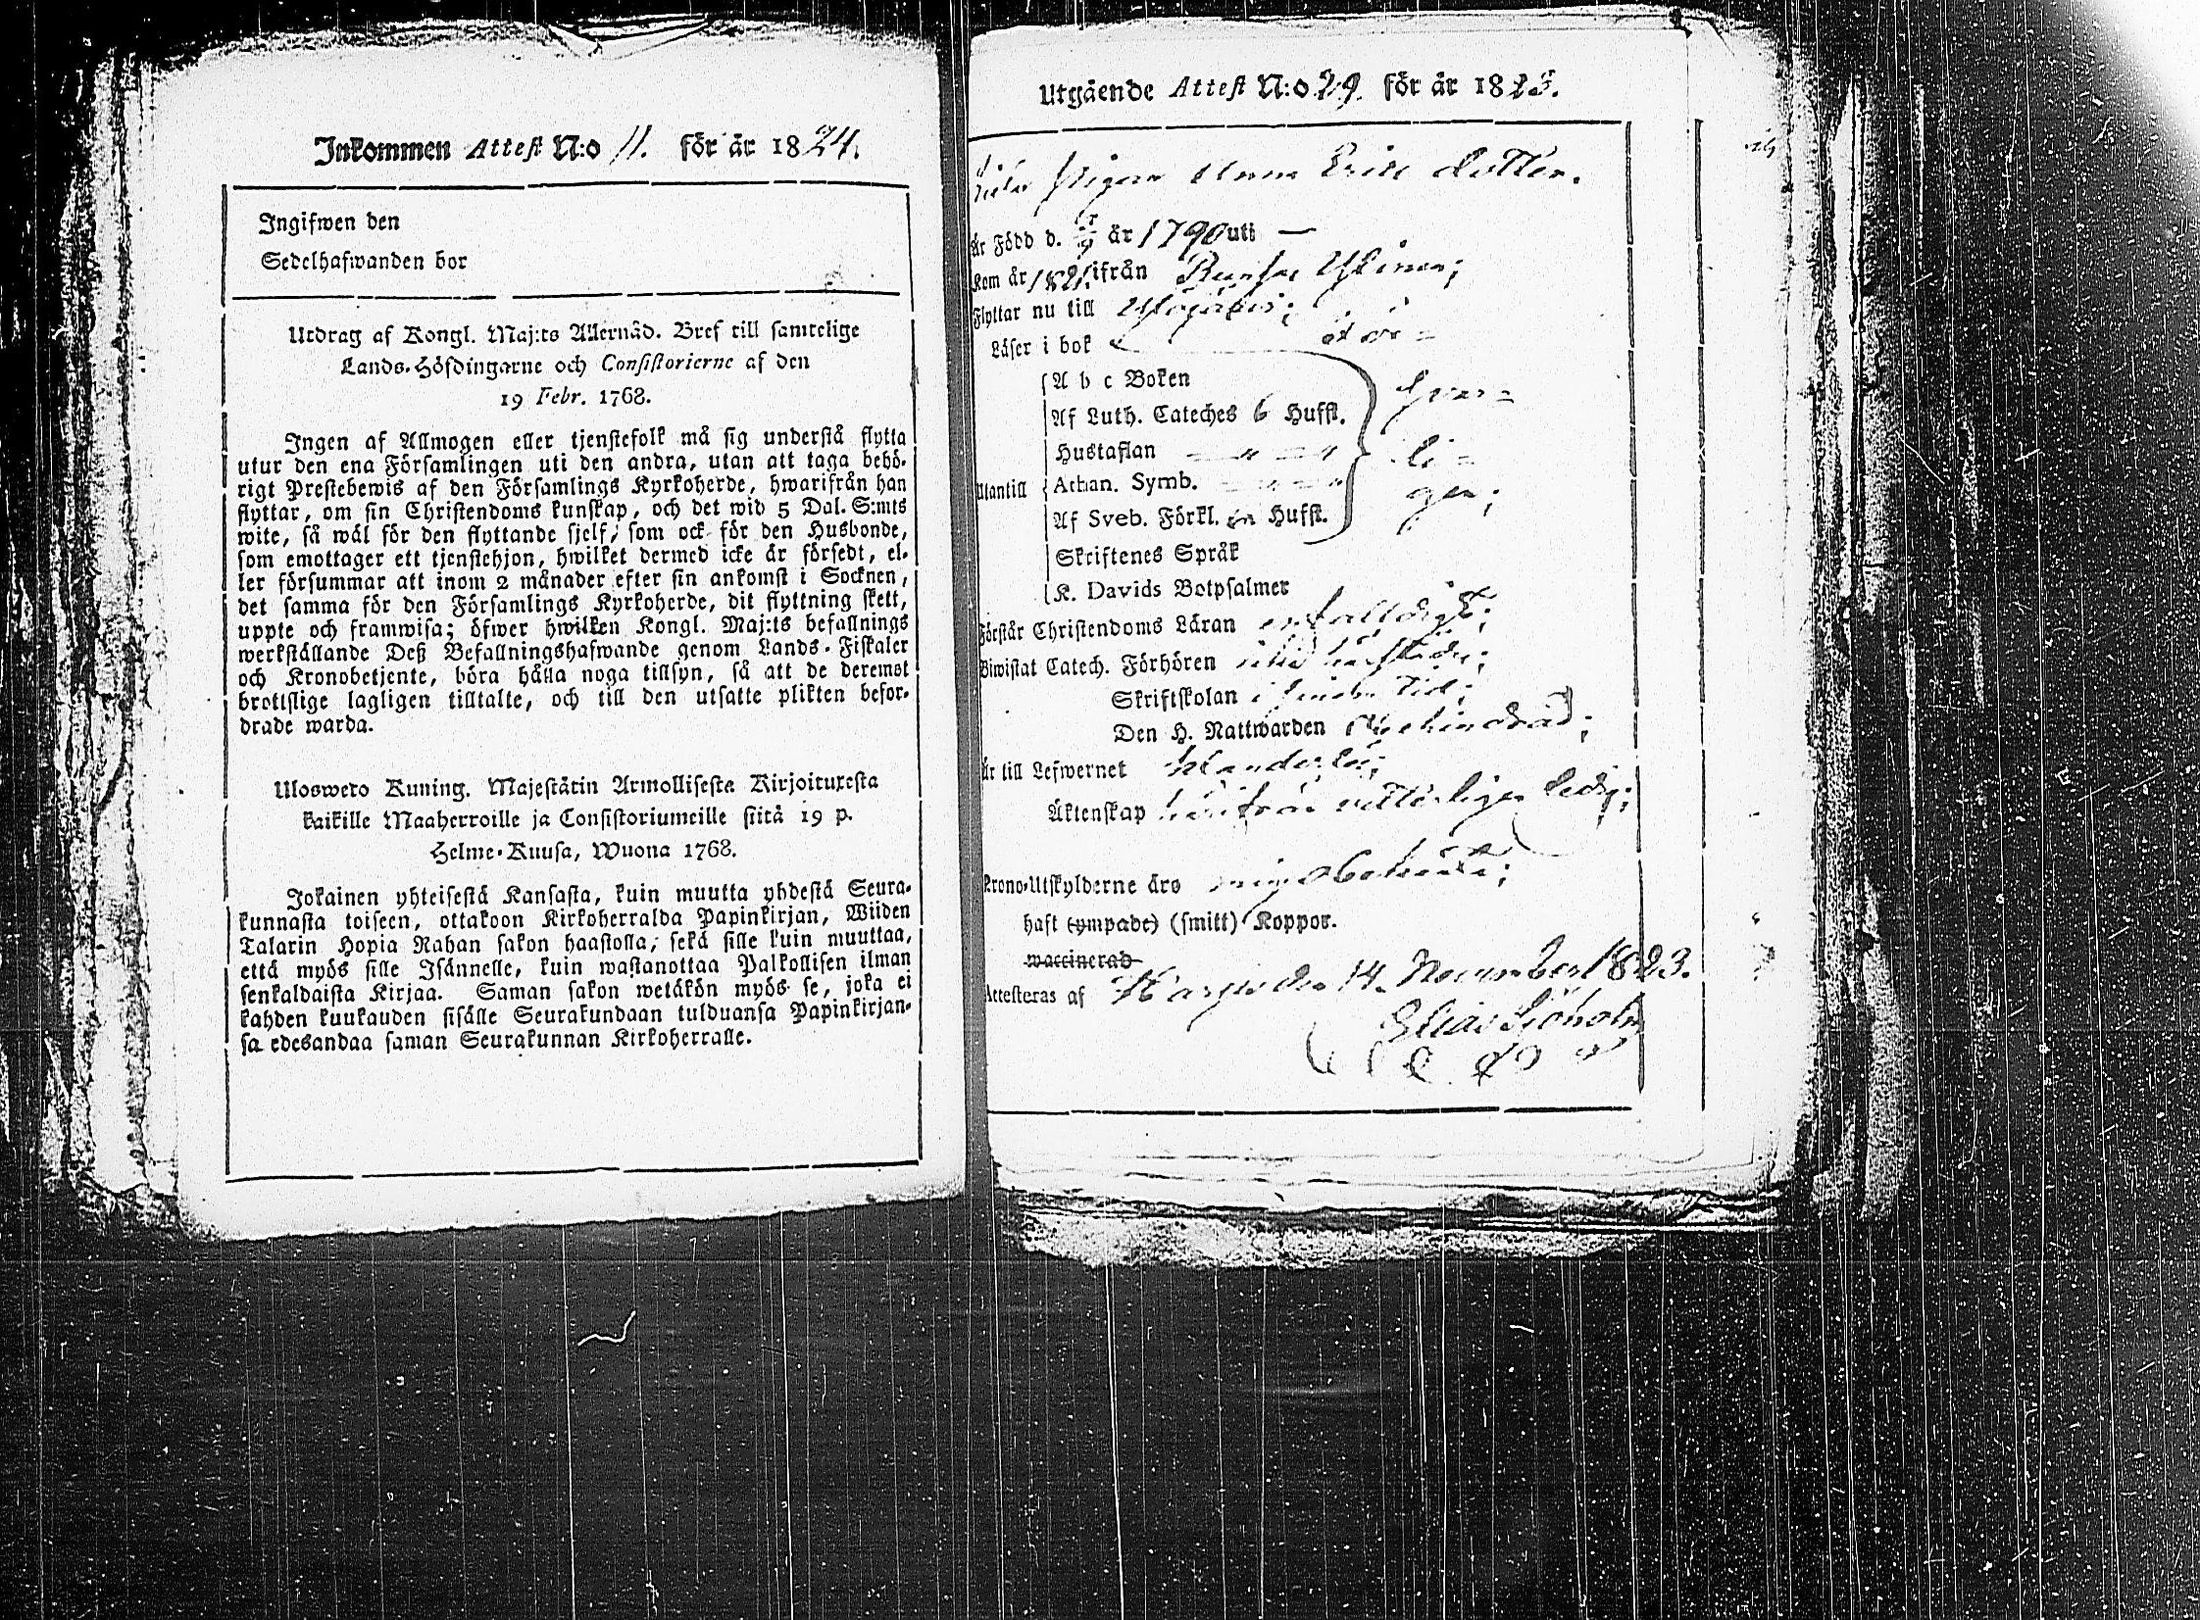 Inkommen Attest N:o 11. för år 1824.
Ingifwen den
Sedelhafwanden bor
Utdrag af Kongl. Maj:ts Allernåd. Bref till samtelige
Lands-Höfdingarne och Consistorierne af den
19 Febr. 1768.
Ingen af Allmogen eller tjenstefolk må sig understå flytta
utur den ena Församlingen uti den andra, utan att taga behö-
rigt Prestebewis af den Församlings Kyrkoherde, hwarifrån han
flyttar, om sin Christendoms kunskap, och det wid 5 Dal. S:mts
wite, så wäl för den flyttande sjelf, som ock för den Husbonde,
som emottager ett tjenstehjon, hwilket dermed icke är försedt, el-
ler försummar att inom 2 månader efter sin ankomst i Socknen,
det samma för den Församlings Kyrkoherde, dit flyttning skett,
uppte och framwisa; öfwer hwilken Kongl. Maj:ts befallnings
werkställande Deß Befallningshafwande genom Lands-Fiskaler
och Kronobetjente, böra hålla noga tillsyn, så att de deremot
brottslige lagligen tilltalte, och till den utsatte plikten befor-
drade warda.
Uloswedo Kuning. Majestätin Armollisesta Kirjoituxesta
kaikille Maaherroille ja Consistoriumeille siitä 19 p.
Helme-Kuusa, Wuona 1768.
Jokainen yhteisestä Kansasta, kuin muutta yhdestä Seura-
kunnasta toiseen, ottakoon Kirkoherralda Papinkirjan, Wiiden
Talarin Hopia Rahan sakon haastolla; sekä sille kuin muuttaa,
että myös sille Isännelle, kuin wastanottaa Palkollisen ilman
senkaldaista Kirjaa. Saman sakon wetäkön myös se, joka ei
kahden kuukauden sisälle Seurakundaan tulduansa Papinkirjan-
sa edesandaa saman Seurakunnan Kirkoherralle.
Utgående Attest N:o 29. för år 1823.
Pigan Anna Erics dotter.
är Född d. år 1790 uti —
Kom år 1821 ifrån
Flyttar nu till
Läser i bok
A b c Boken
Af Luth. Cateches 6 Hufst.
Hustaflan
Utantill Athan. Symb.
Af Sveb. Förkl. Hufst.
Skriftenes Språk
K. Davids Botpsalmer
Förstår Christendoms Läran enfalldigt;
Biwistat Catech. Förhören
Skriftskolan i sin tid;
Den H. Nattwarden
är till Lefwernet
Äktenskap härifrån ledig;
Krono-Utskylderne äro
haft (ympade) (smitt) Koppor.
waccinerad
Attesteras af den 14. November 1823.
Elias Sjöholm